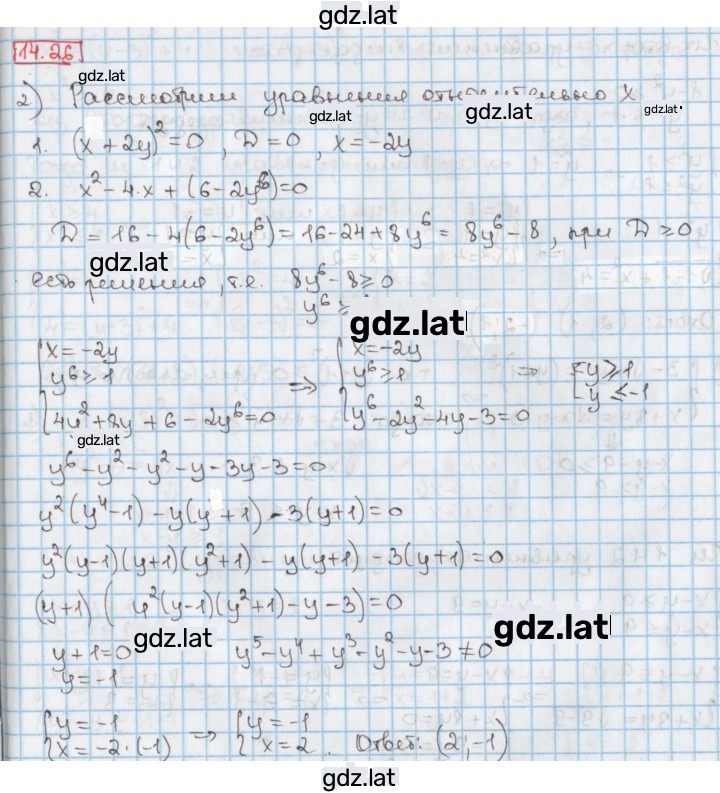 gdz.lat
14.26
gdz.lat
2) Рассмотрим уравнения относительно x
gdz.lat gdz.lat gdz.lat
1. (x + 2y)² = 0, D = 0, x = -2y
2. x² - 4·x + (6 - 2y⁶) = 0
D = 16 - 4(6 - 2y⁶) = 16 - 24 + 8y⁶ = 8y⁶ - 8, при D ≥ 0
gdz.lat
есть решения, т.е. 8y⁶ - 8 ≥ 0
y⁶ ≥
gdz.lat
{ x = -2y { x = -2y
y⁶ ≥ 1 ⇒ y⁶ ≥ 1 ⇒ [ y ≥ 1
4y² + 8y + 6 - 2y⁶ = 0 y⁶ - 2y² - 4y - 3 = 0 y ≤ -1
gdz.lat
y⁶ - y² - y² - y - 3y - 3 = 0
y²(y⁴ - 1) - y(y + 1) - 3(y + 1) = 0
y²(y - 1)(y + 1)(y² + 1) - y(y + 1) - 3(y + 1) = 0
(y + 1) ( y²(y - 1)(y² + 1) - y - 3) = 0
gdz.lat gdz.lat
y + 1 = 0 y⁵ - y⁴ + y³ - y² - y - 3 ≠ 0
y = -1
{ y = -1 ⇒ { y = -1
x = -2·(-1) x = 2. Ответ: (2; -1)
gdz.lat